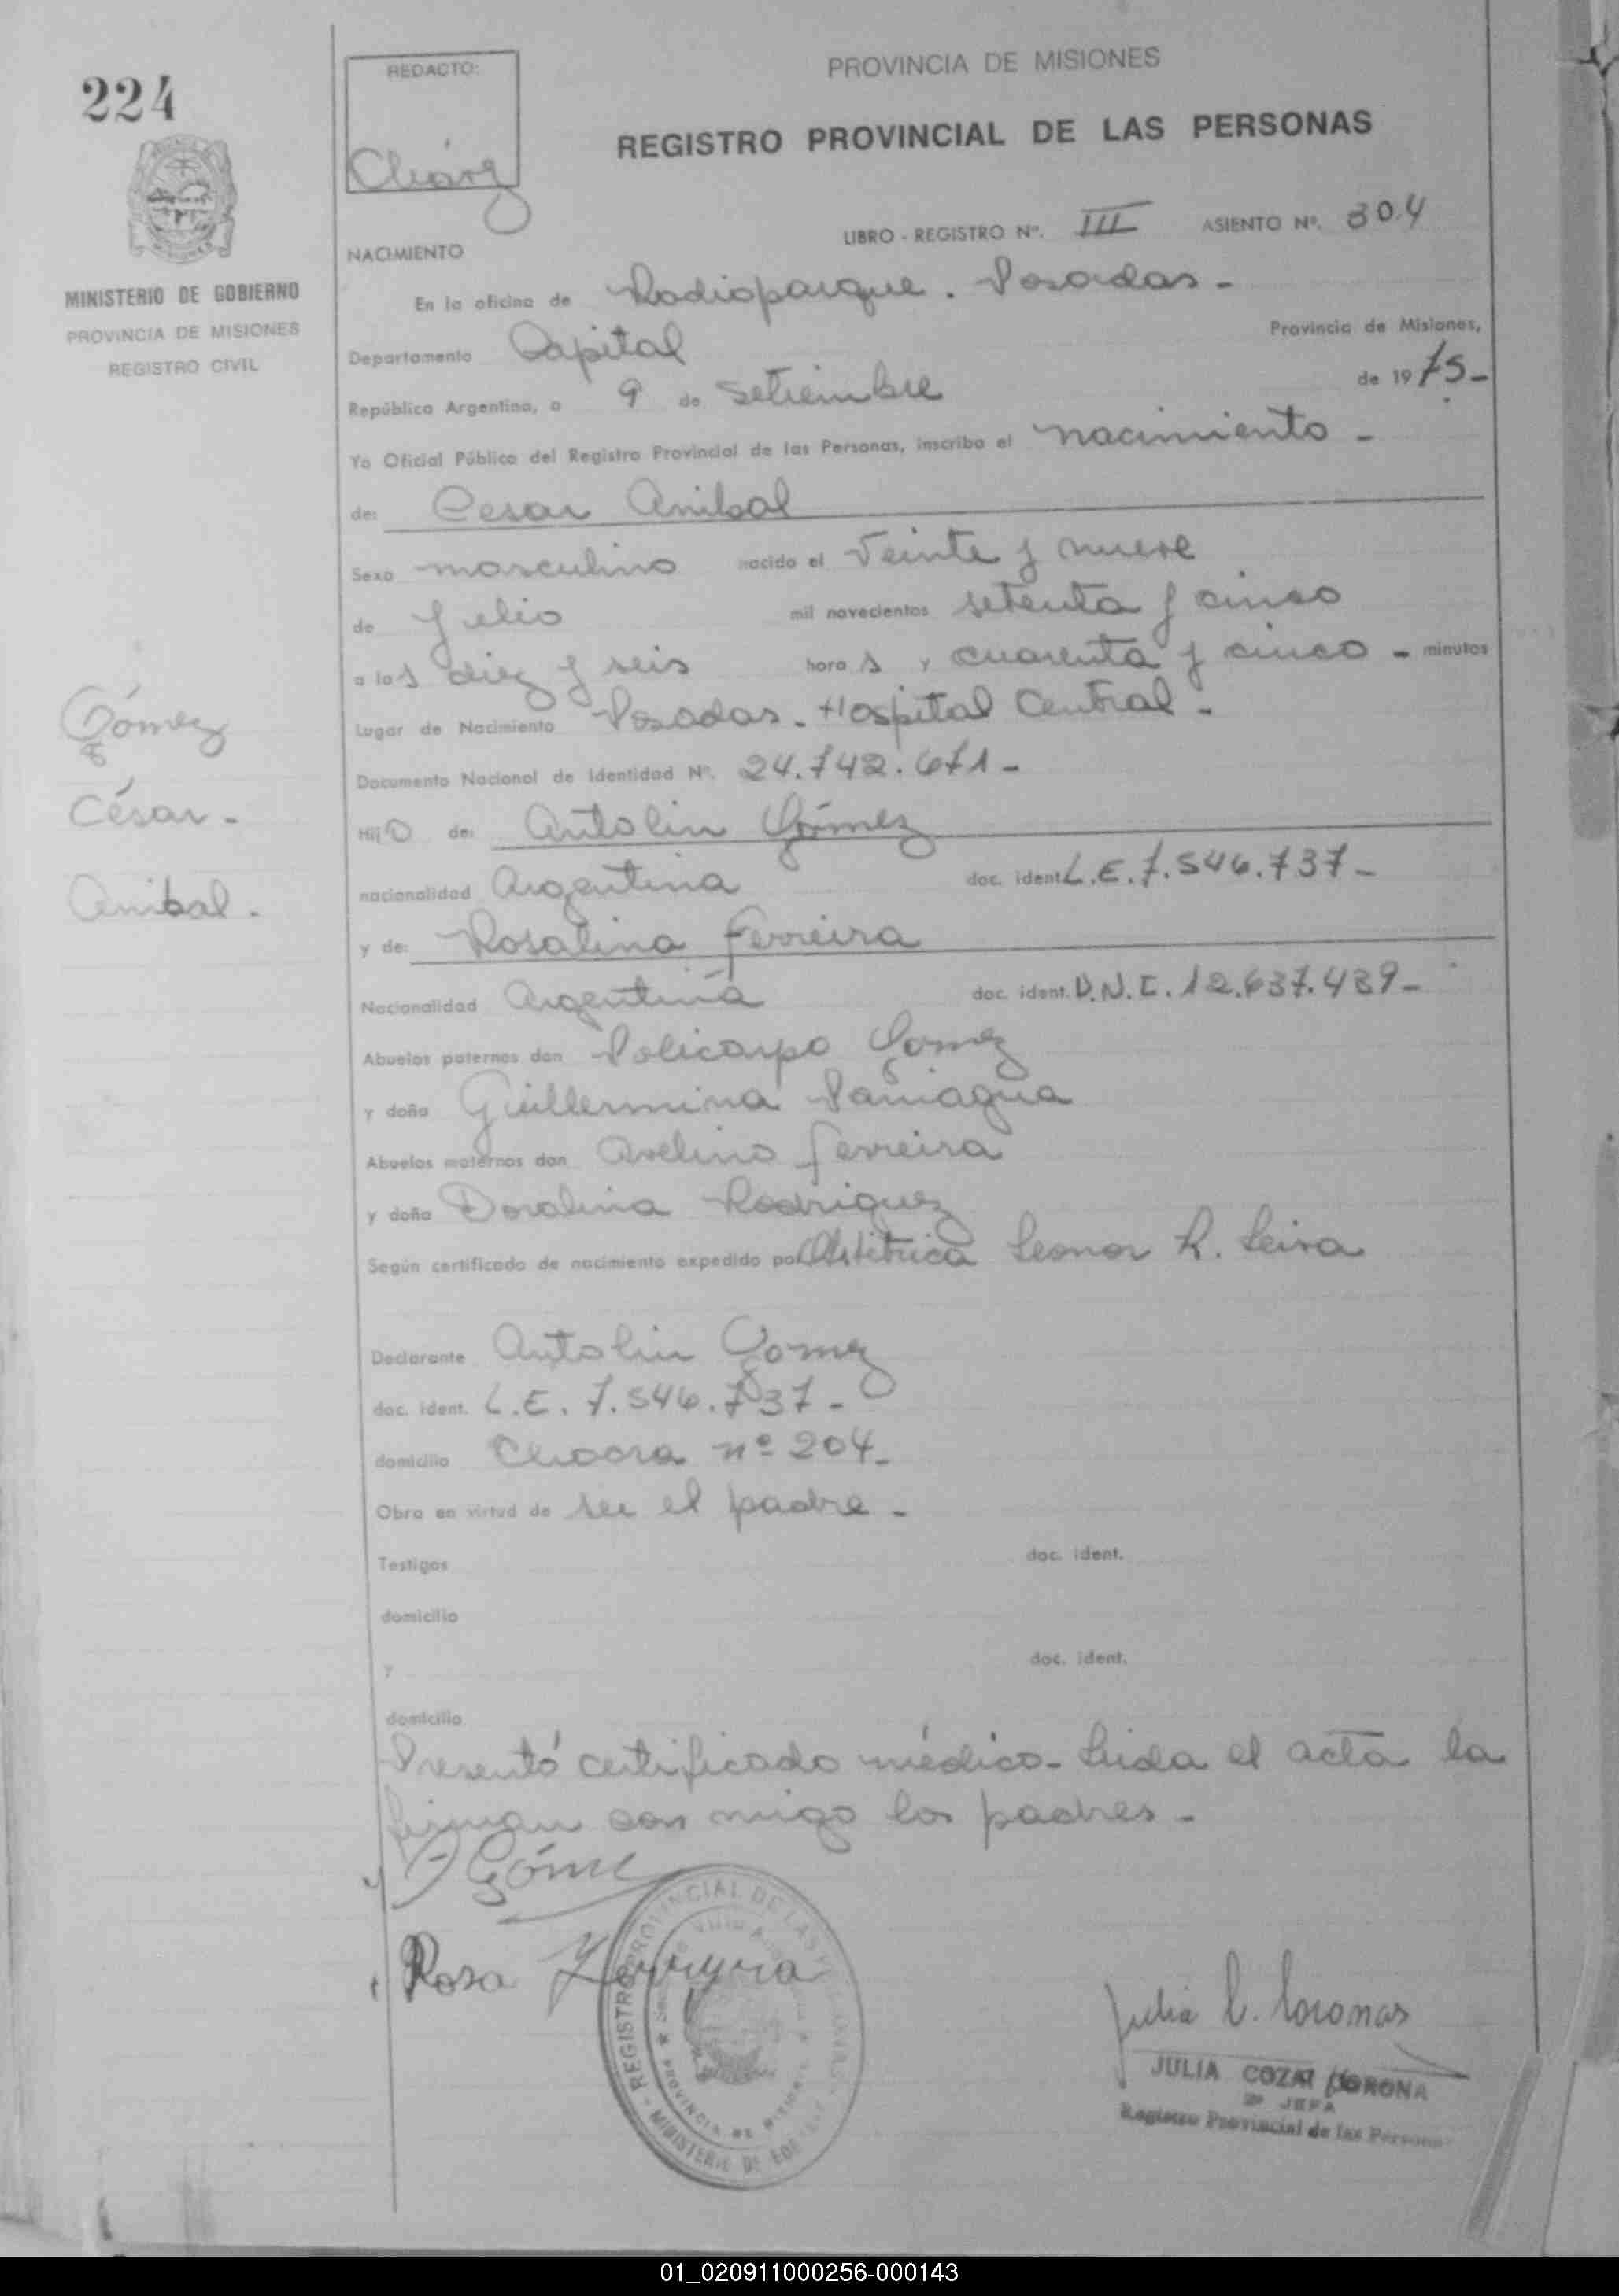 224
REDACTO:
PROVINCIA DE MISIONES
REGISTRO PROVINCIAL DE LAS PERSONAS
MINISTERIO DE GOBIERNO
PROVINCIA DE MISIONES
REGISTRO CIVIL
LIBRO - REGISTRO Nº. III ASIENTO Nº. 304
NACIMIENTO
En la oficina de Radioparque. Posadas -
Departamento Capital Provincia de Misiones,
República Argentina, a 9 de setiembre de 1975-
Yo Oficial Público del Registro Provincial de las Personas, inscribo el nacimiento -
de: Cesar Anibal
Sexo masculino nacido el veinte y nueve
de Julio mil novecientos setenta y cinco
a las diez y seis horas y cuarenta y cinco - minutos
Lugar de Nacimiento Posadas - Hospital Central -
Documento Nacional de Identidad Nº. 24.742.671 -
Hijo de: Antolin Gómez
nacionalidad Argentina doc. ident. L.E. 7.546.737 -
y de: Rosalina Ferreira
Nacionalidad Argentina doc. ident. D.N.I. 12.637.439 -
Abuelos paternos don Policarpo Gomez
y doña Guillermina Paniagua
Abuelos maternos don Avelino Ferreira
y doña Doralina Rodriguez
Según certificado de nacimiento expedido por Obstétrica Leonor R. Leiva
Gómez
César -
Anibal -
Declarante Antolin Gomez
doc. ident. L.E. 7.546.737 -
domicilio Chacra nº 204 -
Obra en virtud de ser el padre -
Testigos doc. ident.
domicilio
y doc. ident.
domicilio
Presentó certificado médico - Leida el acta la
firman con migo los padres -
Góme
Rosa Ferreyra
REGISTRO PROVINCIAL DE LAS
PROVINCIA DE MISIONES
MINISTERIO DE
Julia C. Coronas
JULIA CORONA
JEFA
Registro Provincial de las Personas
01_020911000256-000143